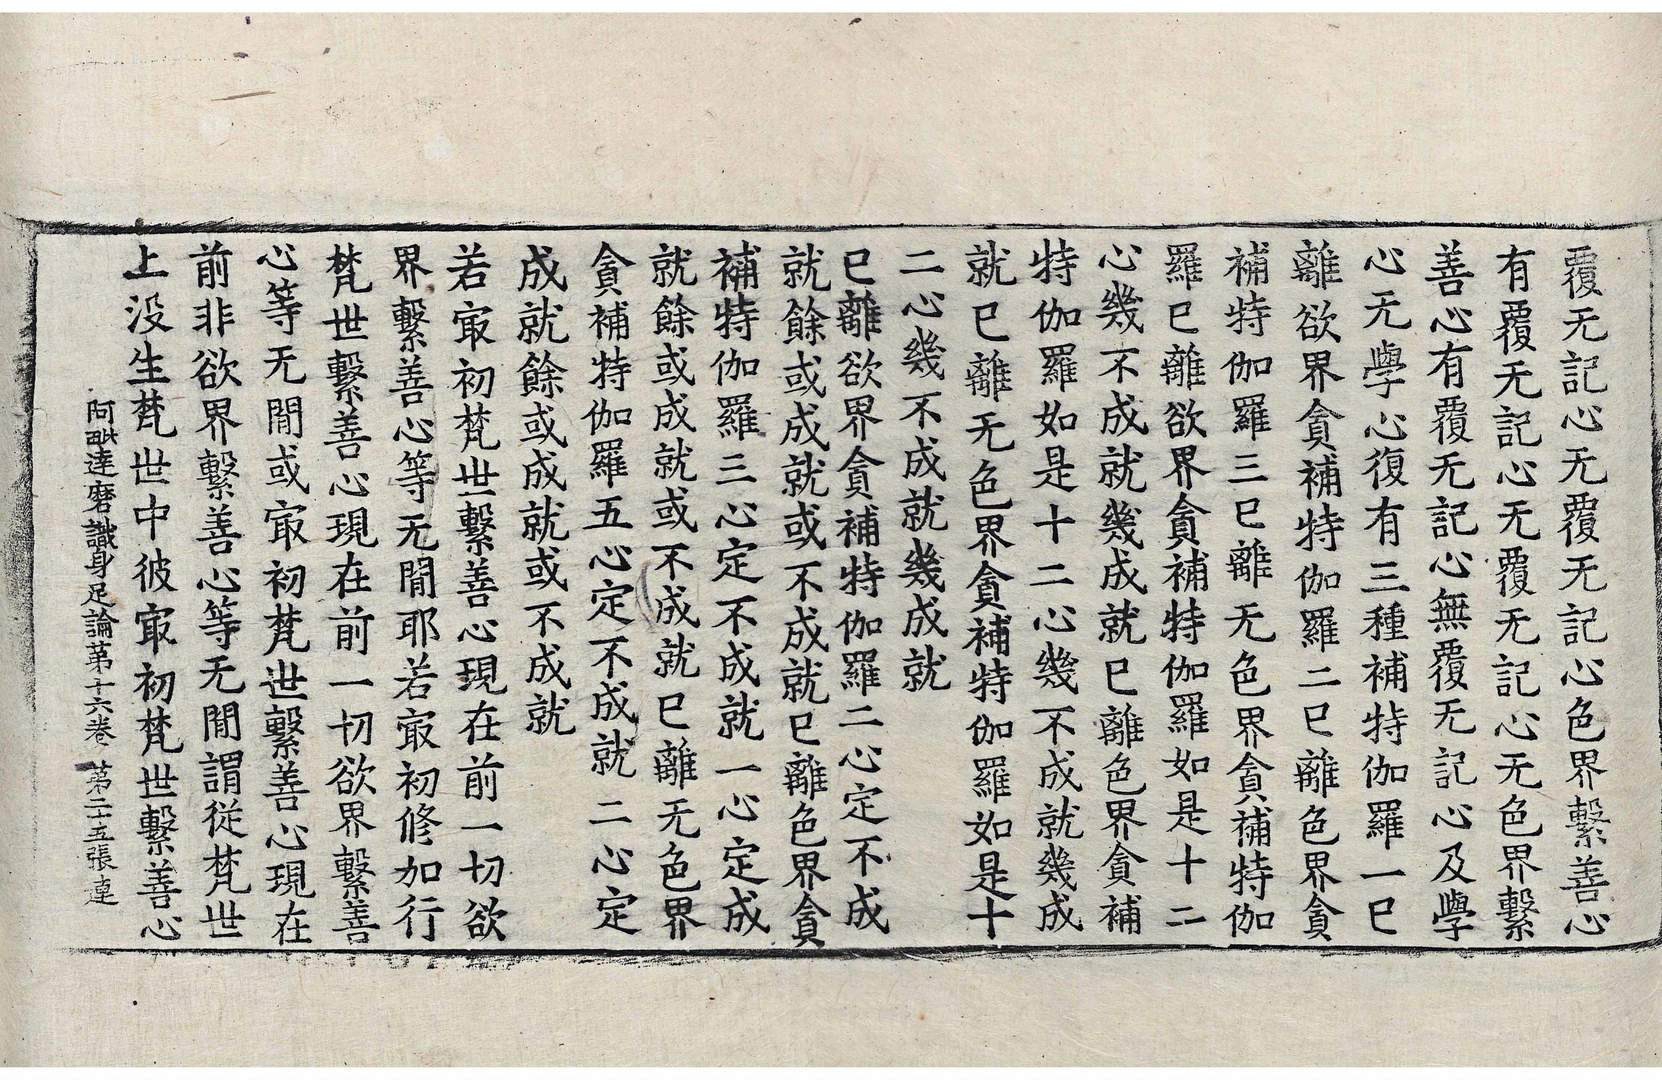 覆无記心无覆无記心色界繫善心
有覆无記心无覆无記心无色界繫
善心有覆无記心無覆无記心及學
心无學心復有三種補特伽羅一巳
離欲界貪補特伽羅二巳離色界貪
補特伽羅三巳離无色界貪補特伽
羅巳離欲界貪補特伽羅如是十二
心幾不成就幾成就巳離色界貪補
特伽羅如是十二心幾不成就幾成
就巳離无色界貪補特伽羅如是十
二心幾不成就幾成就
巳離欲界貪補特伽羅二心定不成
就餘或成就或不成就巳離色界貪
補特伽羅三心定不成就一心定成
就餘或成就或不成就巳離无色界
貪補特伽羅五心定不成就二心定
成就餘或成就或不成就
若㝡初梵世繫善心現在前一切欲
界繫善心等无閒耶若㝡初修加行
梵世繫善心現在前一切欲界繫善
心等无閒或㝡初梵世繫善心現在
前非欲界繫善心等无閒謂從梵世
上没生梵世中彼㝡初梵世繫善心
阿毗達磨識身足論第十六卷 第二十五張 連